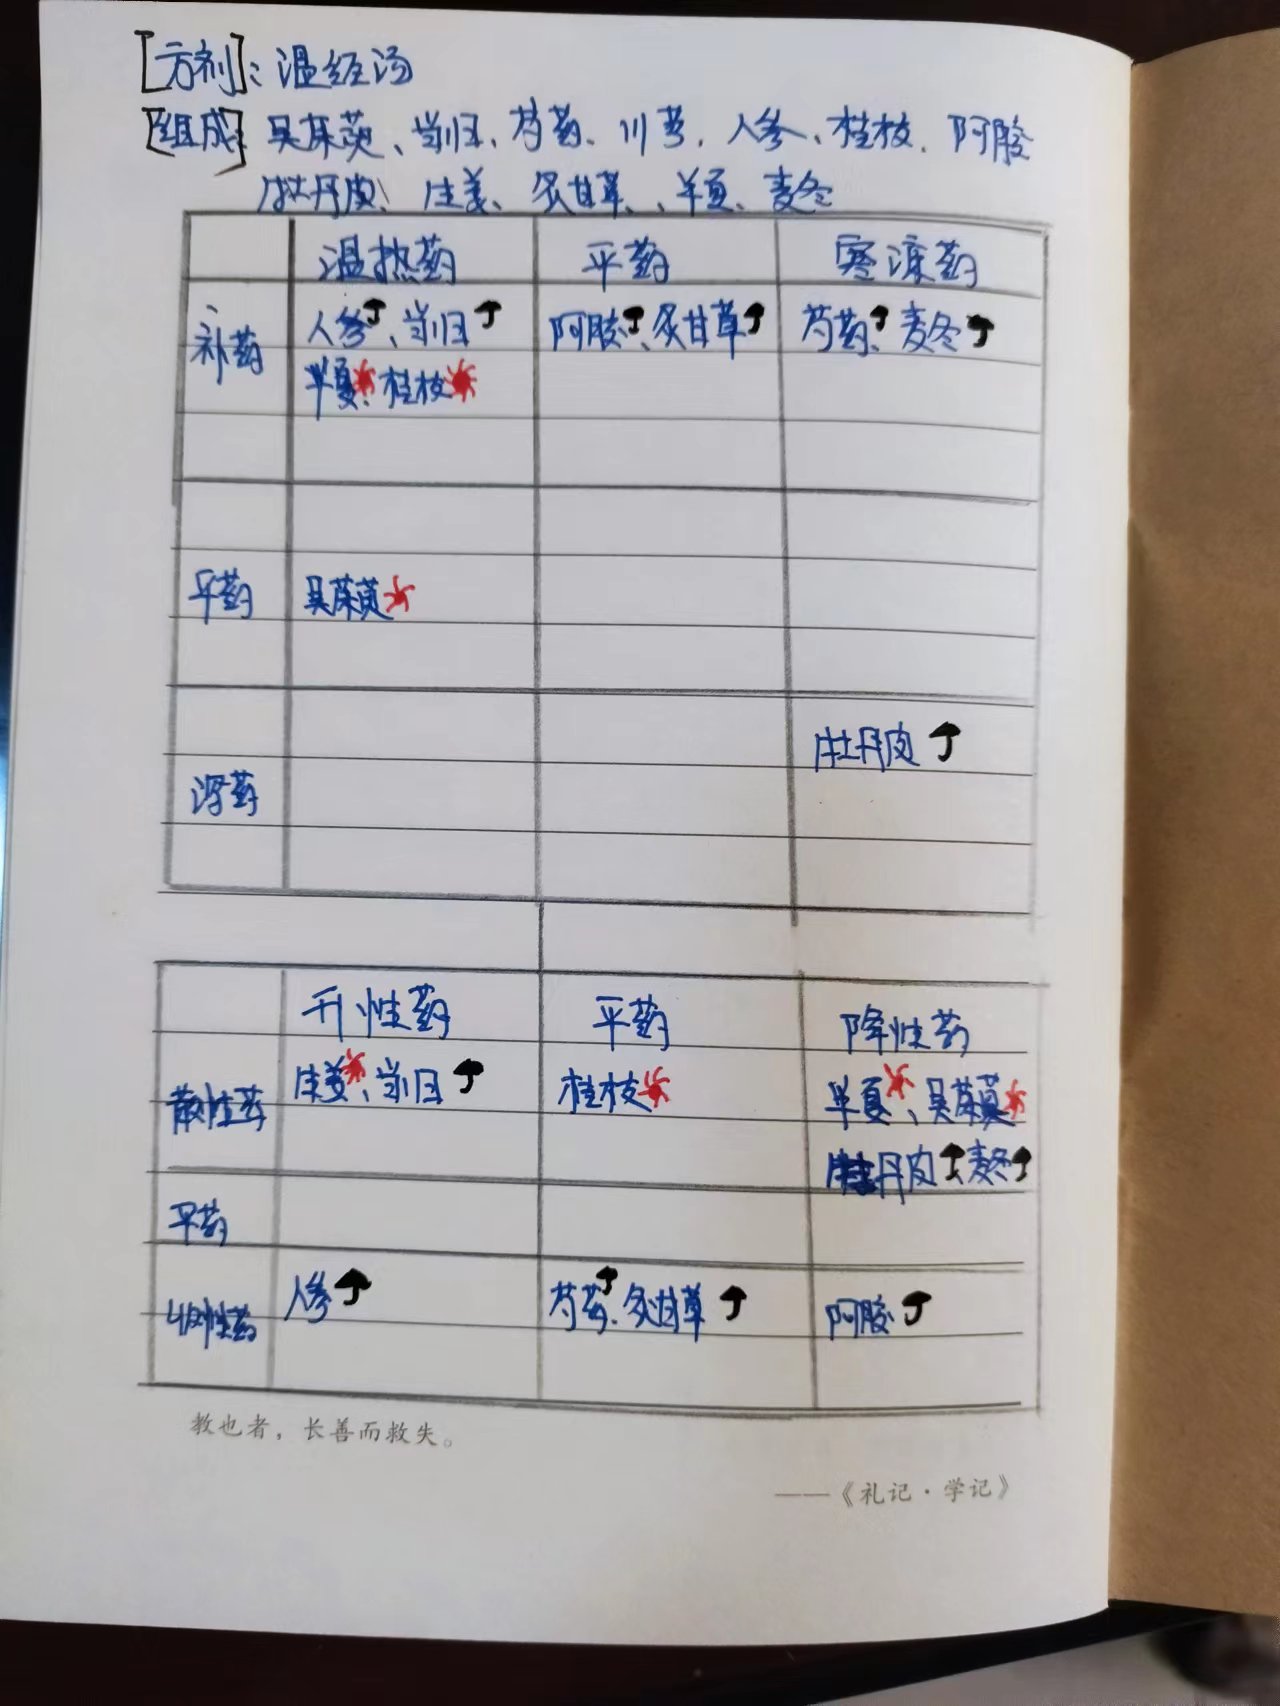 [方剂]：温经汤
[组成] 吴茱萸、当归、芍药、川芎、人参、桂枝、阿胶
牡丹皮、生姜、炙甘草、半夏、麦冬
温热药 平药 寒凉药
补药 人参、当归 阿胶、炙甘草 芍药、麦冬
半夏、桂枝
平药 吴茱萸
牡丹皮
泻药
升性药 平药 降性药
散性药 生姜、当归 桂枝 半夏、吴茱萸
牡丹皮、麦冬
平药
收性药 人参 芍药、炙甘草 阿胶
教也者，长善而救失。
——《礼记·学记》